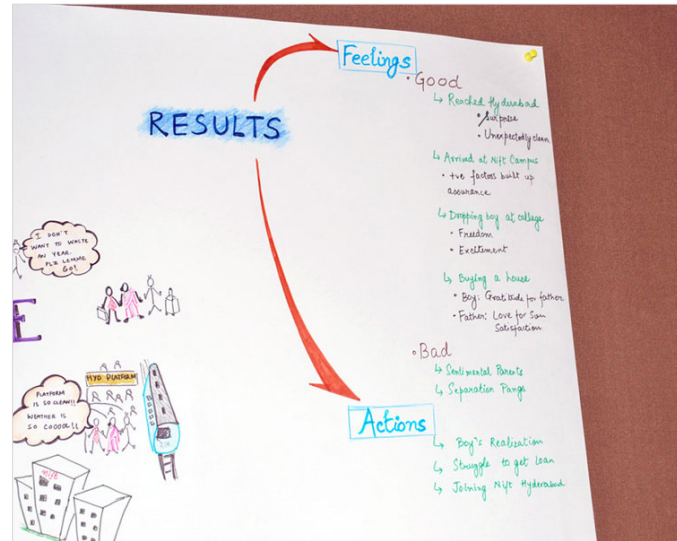 RESULTS
Feelings
• Good
↳ Reached Hyderabad
• Surprise
• Unexpectedly clean
↳ Arrived at Nift Campus
• +ve factors built up
assurance
↳ Dropping boy at college
• Freedom
• Excitement
↳ Buying a house
• Boy: Gratitude for father
• Father: Love for Son
Satisfaction
• Bad
↳ Sentimental Parents
↳ Separation Pangs
Actions
↳ Boy's Realization
↳ Struggle to get Loan
↳ Joining Nift Hyderabad
I DON'T
WANT TO WASTE
AN YEAR.
PLZ LEMME
GO!
E
HYD PLATFORM
PLATFORM
IS SO CLEAN!!
WEATHER IS
SO COOOL!!
Nift